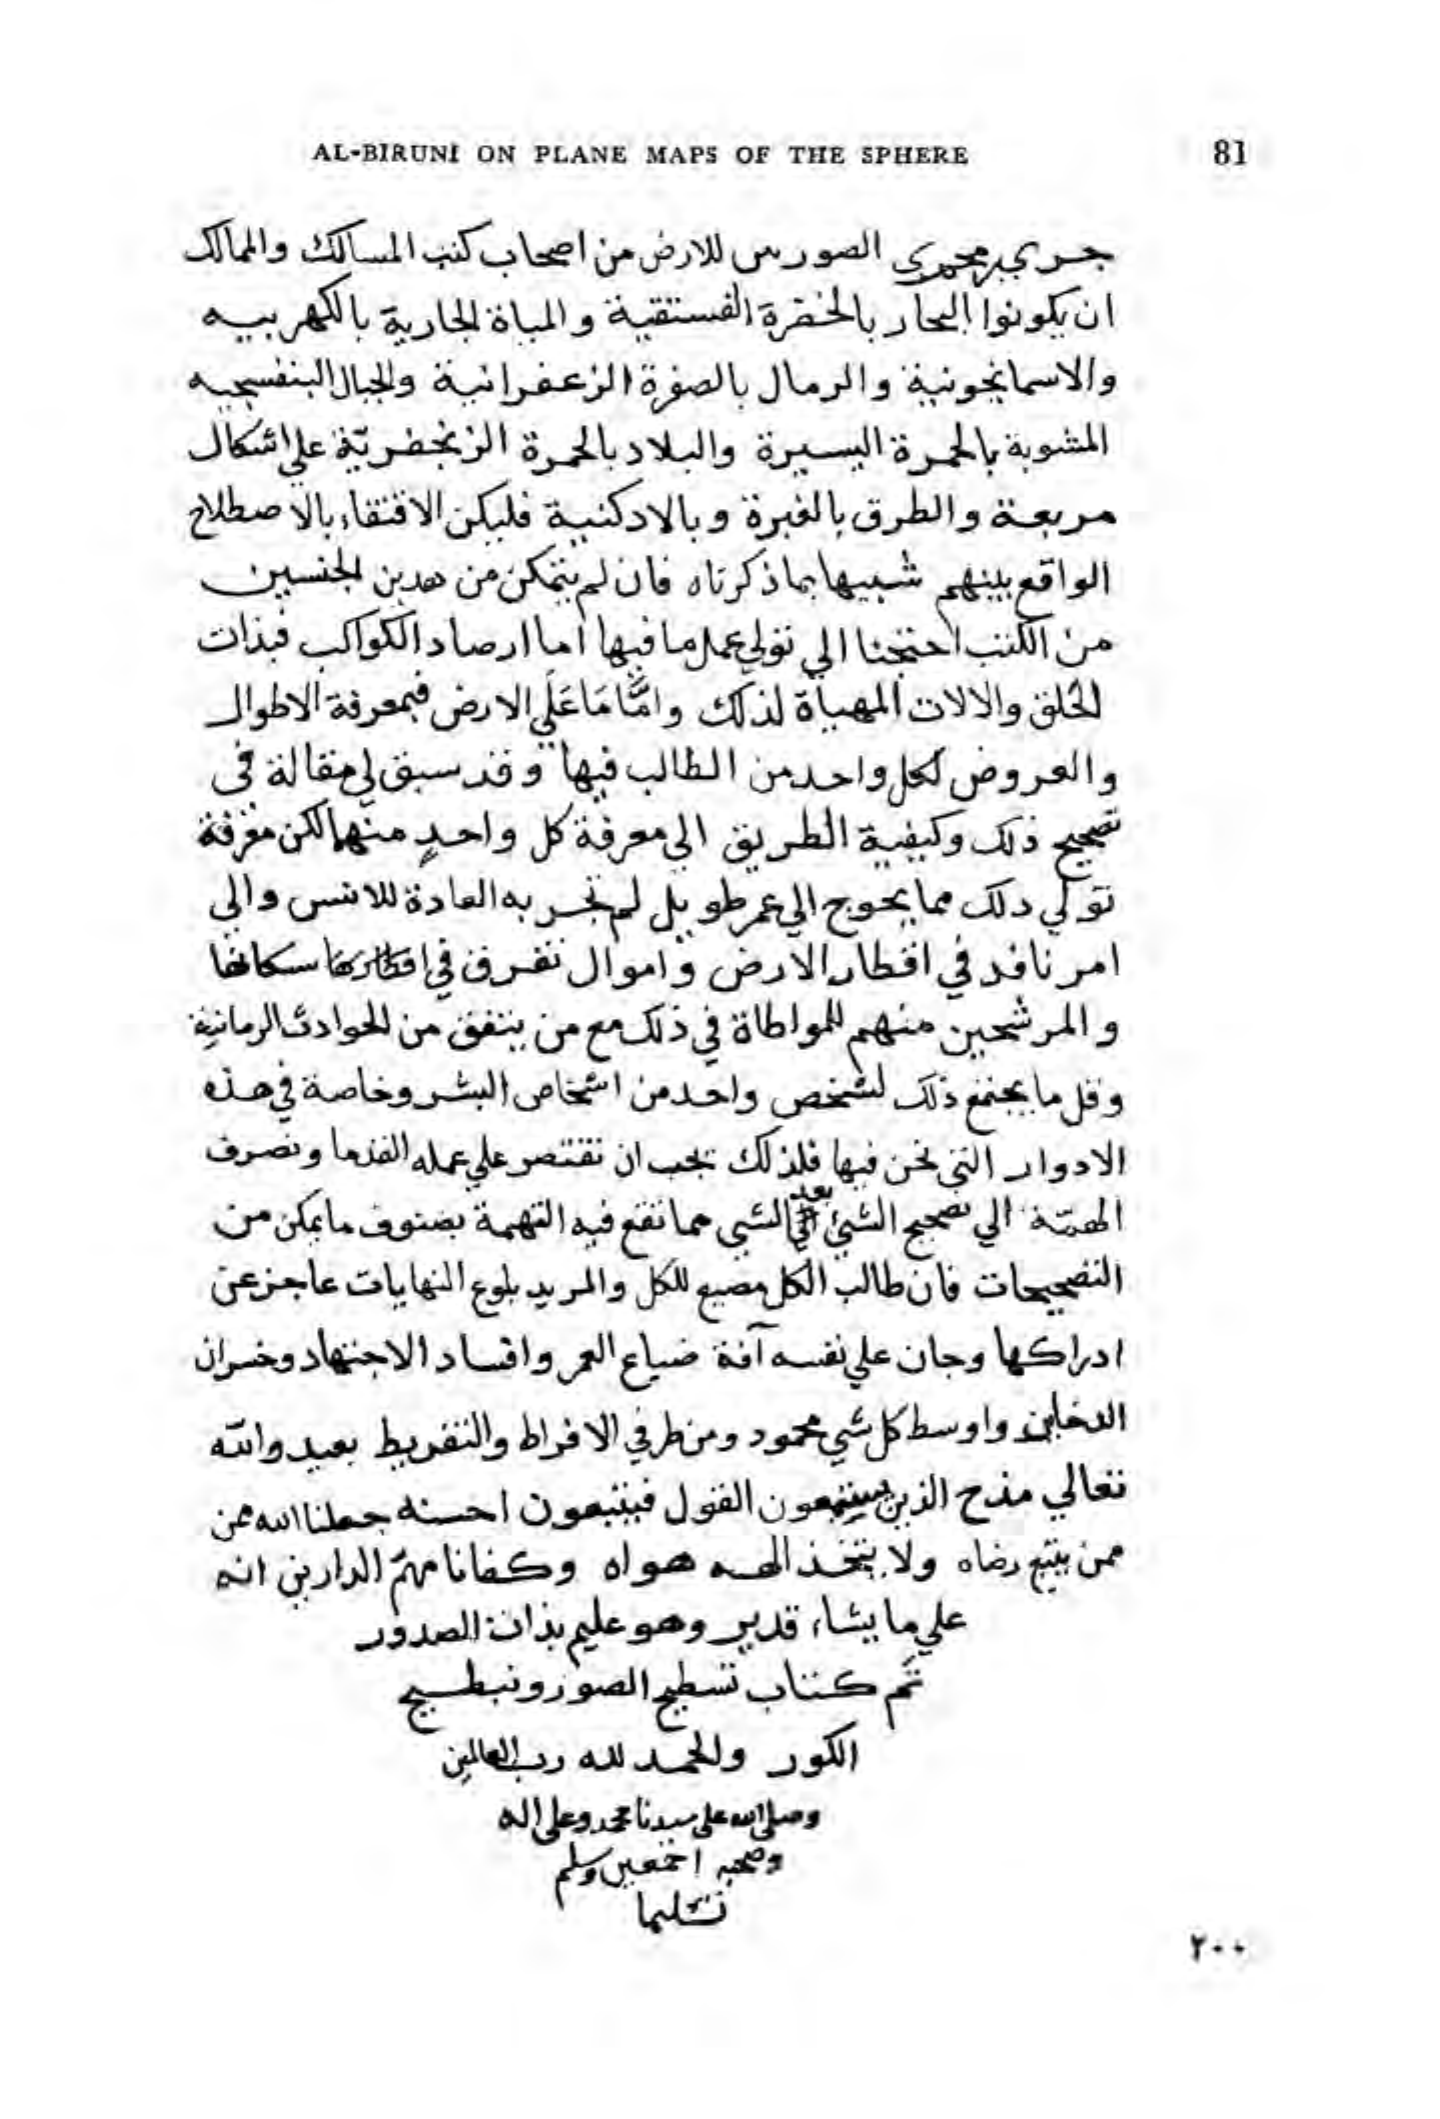 AL-BIRUNI ON PLANE MAPS OF THE SPHERE 81
جري مجري الصورين للارض من اصحاب كتب المسالك والممالك
ان يكونوا البحار بالخضرة الفستقية والمياة الجارية بالكهربيه
والاسمانجونية والرمال بالصفرة الزعفرانية والجبال البنفسجيه
المشوبة بالحمرة اليسيرة والبلاد بالحمرة الزنجفريّة علي اشكال
مربعة والطرق بالغبرة وبالادكنية فليكن الاقتقاء بالاصطلاح
الواقع بينهم شبيها بما ذكرناه فان لم يتمكن من هدين الجنسين
من الكتب احتجنا الي تولي عمل ما فيها اما ارصاد الكواكب فبذات
الحلق والالات المهياة لذلك وامَّا مَا عَلَي الارض فبمعرفة الاطوال
والعروض لكل واحد من الطالب فيها وقد سبق لي مقالة في
تصحيح ذلك وكيفية الطريق الي معرفة كل واحدٍ منهما لكن معرفة
تولي دلك مما يحوج الي عمر طويل لم تجر به العادة للانس والي
امر نافد في اقطار الارض واموال تفرق في سكانها
والمرشحين منهم للمواطاة في ذلك مع من يتفق من الحوادث الزمانية
وقل ما يجتمع ذلك لشخص واحد من اشخاص البشر وخاصة في هذه
الادوار التي نحن فيها فلذلك يجب ان نقتصر علي عمله القدما ونصرف
الهمّة الي تصحيح الشيئ بعد الشيي مما تقع فيه التهمة بصنوف ما يمكن من
التصحيحات فان طالب الكل مضيع للكل والمريد بلوع النهايات عاجز عن
ادراكها وجان علي نفسه آفة ضياع العمر وافساد الاجتهاد وخسران
واوسط كل شي محمود ومن طرفي الافراط والتفريط بعيد والله
تعالي مدح الذين يستمعون القول فيتبعون احسنه جعلنا الله ممن
ممن يتبع رضاه ولا يتخذ الهه هواه وكفانا مهمّ الدارين انه
علي ما يشاء قدير وهو عليم بذات الصدور
تَم كتاب تسطيح الصور وتبطيح
الكور والحمد لله رب العالمين
وصلى الله على سيدنا محمد وعلى اله
وصحبه اجمعين وسلم
تسليما
٢٠٠